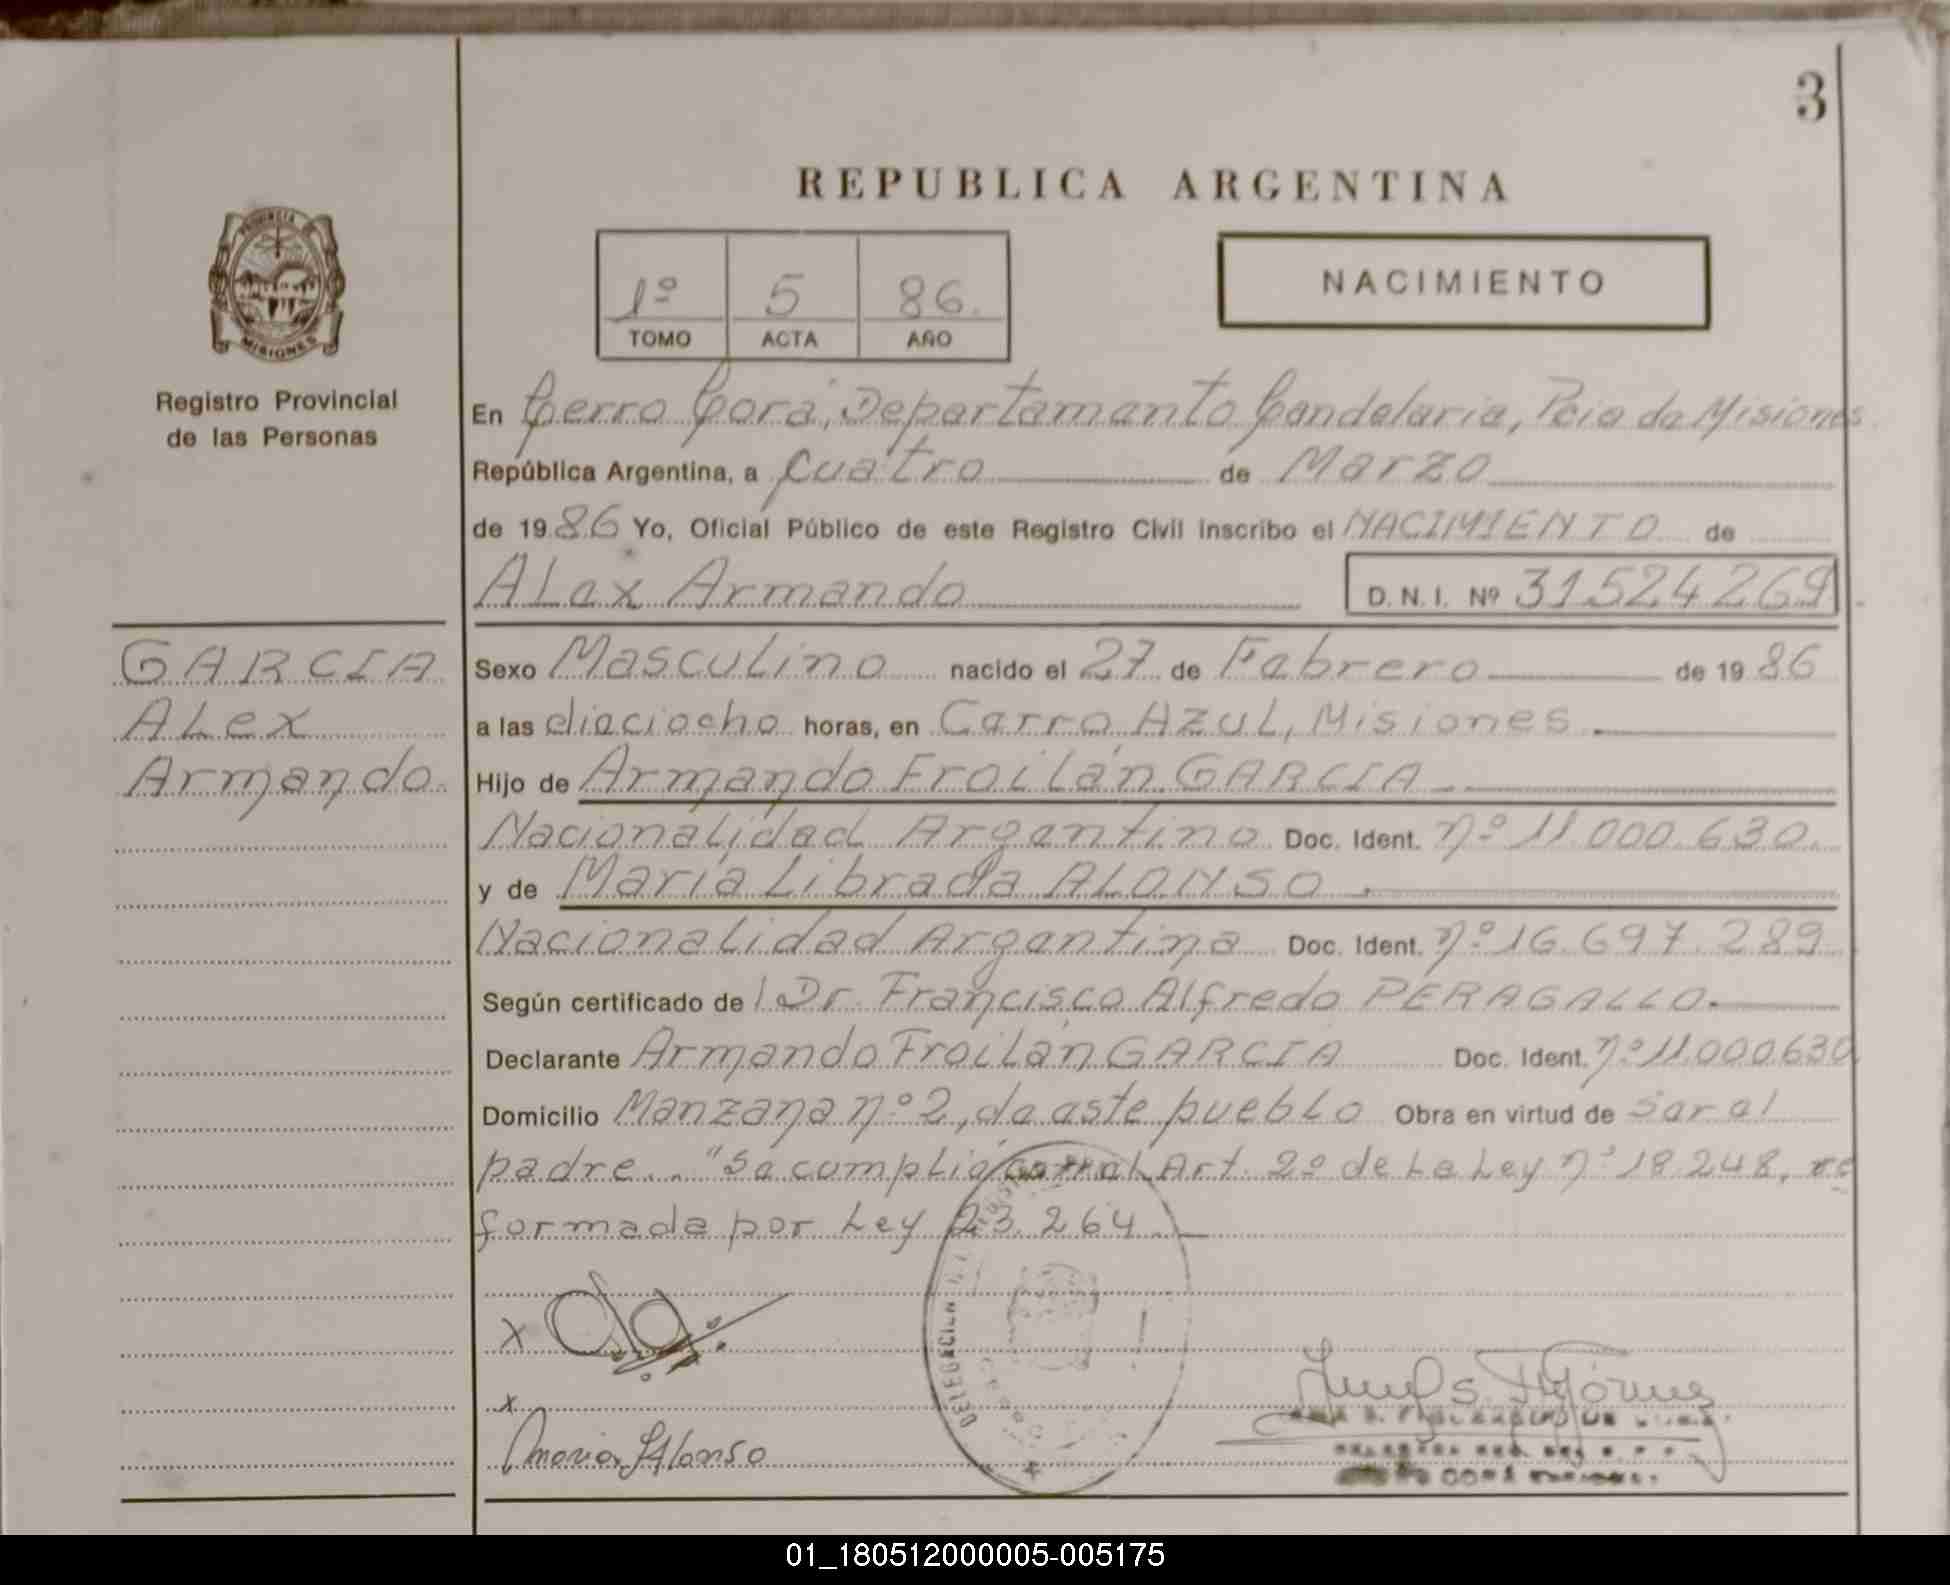 3
REPUBLICA ARGENTINA
PROVINCIA DE
MISIONES
Registro Provincial
de las Personas
1º 5 86.
TOMO ACTA AÑO
NACIMIENTO
En Cerro Corá, Departamento Candelaria, Pcia de Misiones
República Argentina, a cuatro de Marzo
de 1986 Yo, Oficial Público de este Registro Civil inscribo el NACIMIENTO de
ALex Armando D. N. I. Nº 31524269
GARCIA
ALex
Armando.
Sexo Masculino nacido el 27 de Febrero de 1986
a las dieciocho horas, en Cerro AZUL, Misiones.
Hijo de Armando Froilán GARCIA.
Nacionalidad Argentino Doc. Ident. nº 11.000.630.
y de María Librada ALONSO.
Nacionalidad Argentina Doc. Ident. nº 16.697.289
Según certificado de l Dr. Francisco Alfredo PERAGALLO.
Declarante Armando Froilán GARCIA Doc. Ident. nº 11.000.630
Domicilio Manzana nº 2, de este pueblo Obra en virtud de Ser el
padre... "Se cumplió con el Art. 2º de La Ley nº 18.248, re
formada por Ley 23.264.
x
x
Maria L Alonso
DELEGACION
01_180512000005-005175